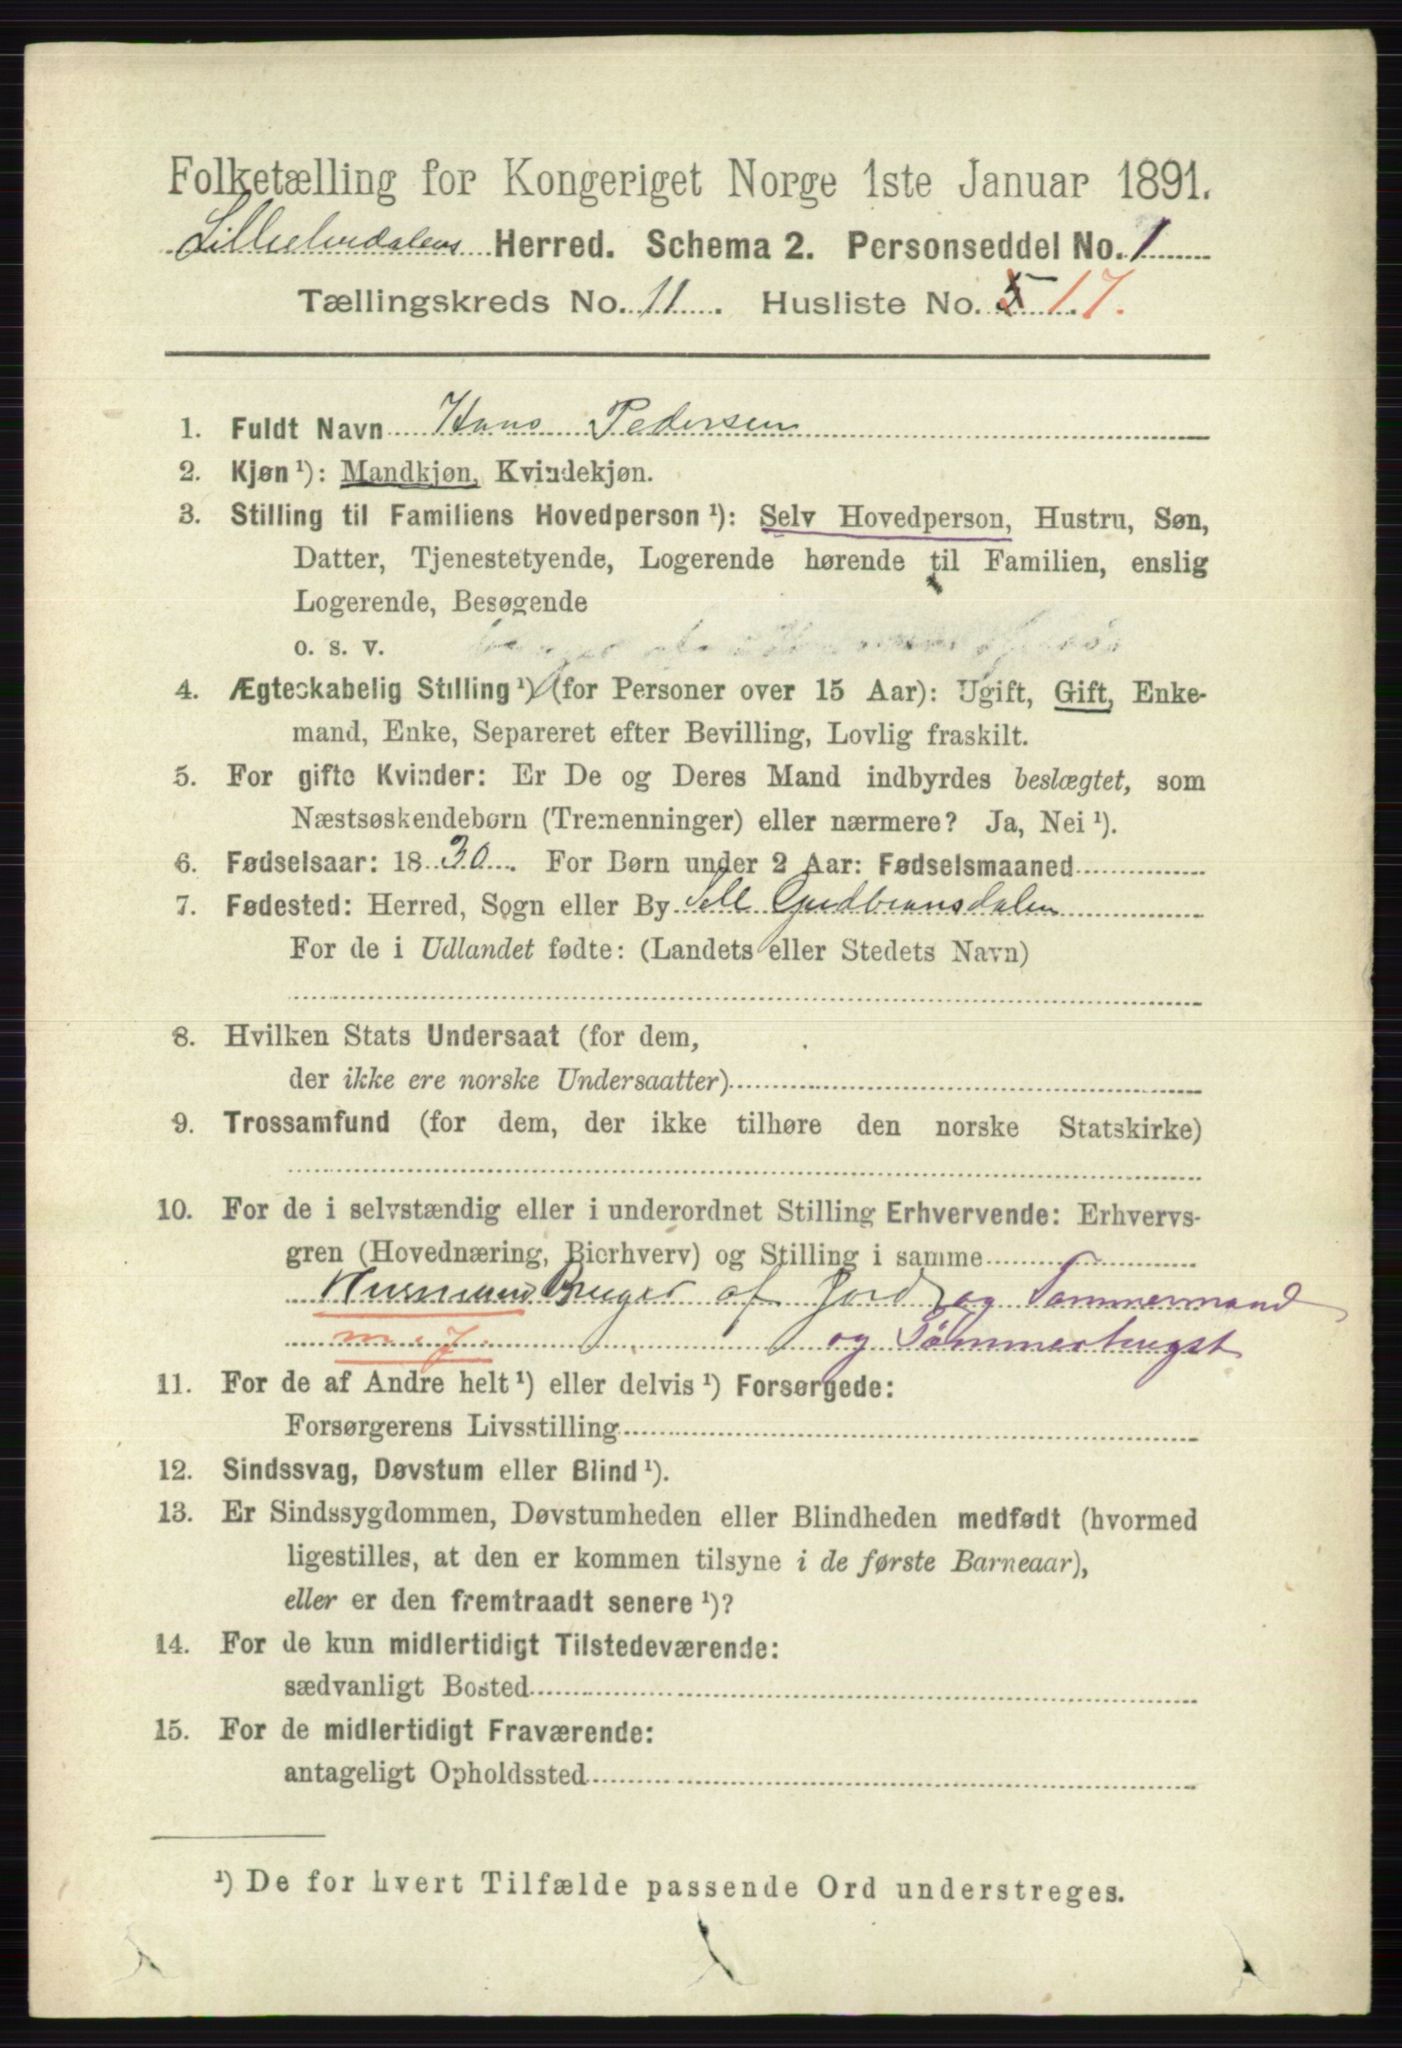 Folketælling for Kongeriget Norge 1ste Januar 1891.
Lilleelvedalens Herred. Schema 2. Personseddel No. 1
Tællingskreds No. 11. Husliste No. 17.
1. Fuldt Navn Hans Pedersen
2. Kjøn ¹): Mandkjøn, Kvindekjøn.
3. Stilling til Familiens Hovedperson ¹): Selv Hovedperson, Hustru, Søn,
Datter, Tjenestetyende, Logerende hørende til Familien, enslig
Logerende, Besøgende
o. s. v.
4. Ægteskabelig Stilling ¹) (for Personer over 15 Aar): Ugift, Gift, Enke-
mand, Enke, Separeret efter Bevilling, Lovlig fraskilt.
5. For gifte Kvinder: Er De og Deres Mand indbyrdes beslægtet, som
Næstsøskendebørn (Tremenninger) eller nærmere? Ja, Nei ¹).
6. Fødselsaar: 1830. For Børn under 2 Aar: Fødselsmaaned
7. Fødested: Herred, Sogn eller By Sell Gudbransdalen
For de i Udlandet fødte: (Landets eller Stedets Navn)
8. Hvilken Stats Undersaat (for dem,
der ikke ere norske Undersaatter)
9. Trossamfund (for dem, der ikke tilhøre den norske Statskirke)
10. For de i selvstændig eller i underordnet Stilling Erhvervende: Erhvervs-
gren (Hovednæring, Bierhverv) og Stilling i samme
Husmand Bruger af Jord og Tømmermand
m. j. og Tømmerhugst
11. For de af Andre helt ¹) eller delvis ¹) Forsørgede:
Forsørgerens Livsstilling
12. Sindssvag, Døvstum eller Blind ¹).
13. Er Sindssygdommen, Døvstumheden eller Blindheden medfødt (hvormed
ligestilles, at den er kommen tilsyne i de første Barneaar),
eller er den fremtraadt senere ¹)?
14. For de kun midlertidigt Tilstedeværende:
sædvanligt Bosted
15. For de midlertidigt Fraværende:
antageligt Opholdssted
¹) De for hvert Tilfælde passende Ord understreges.